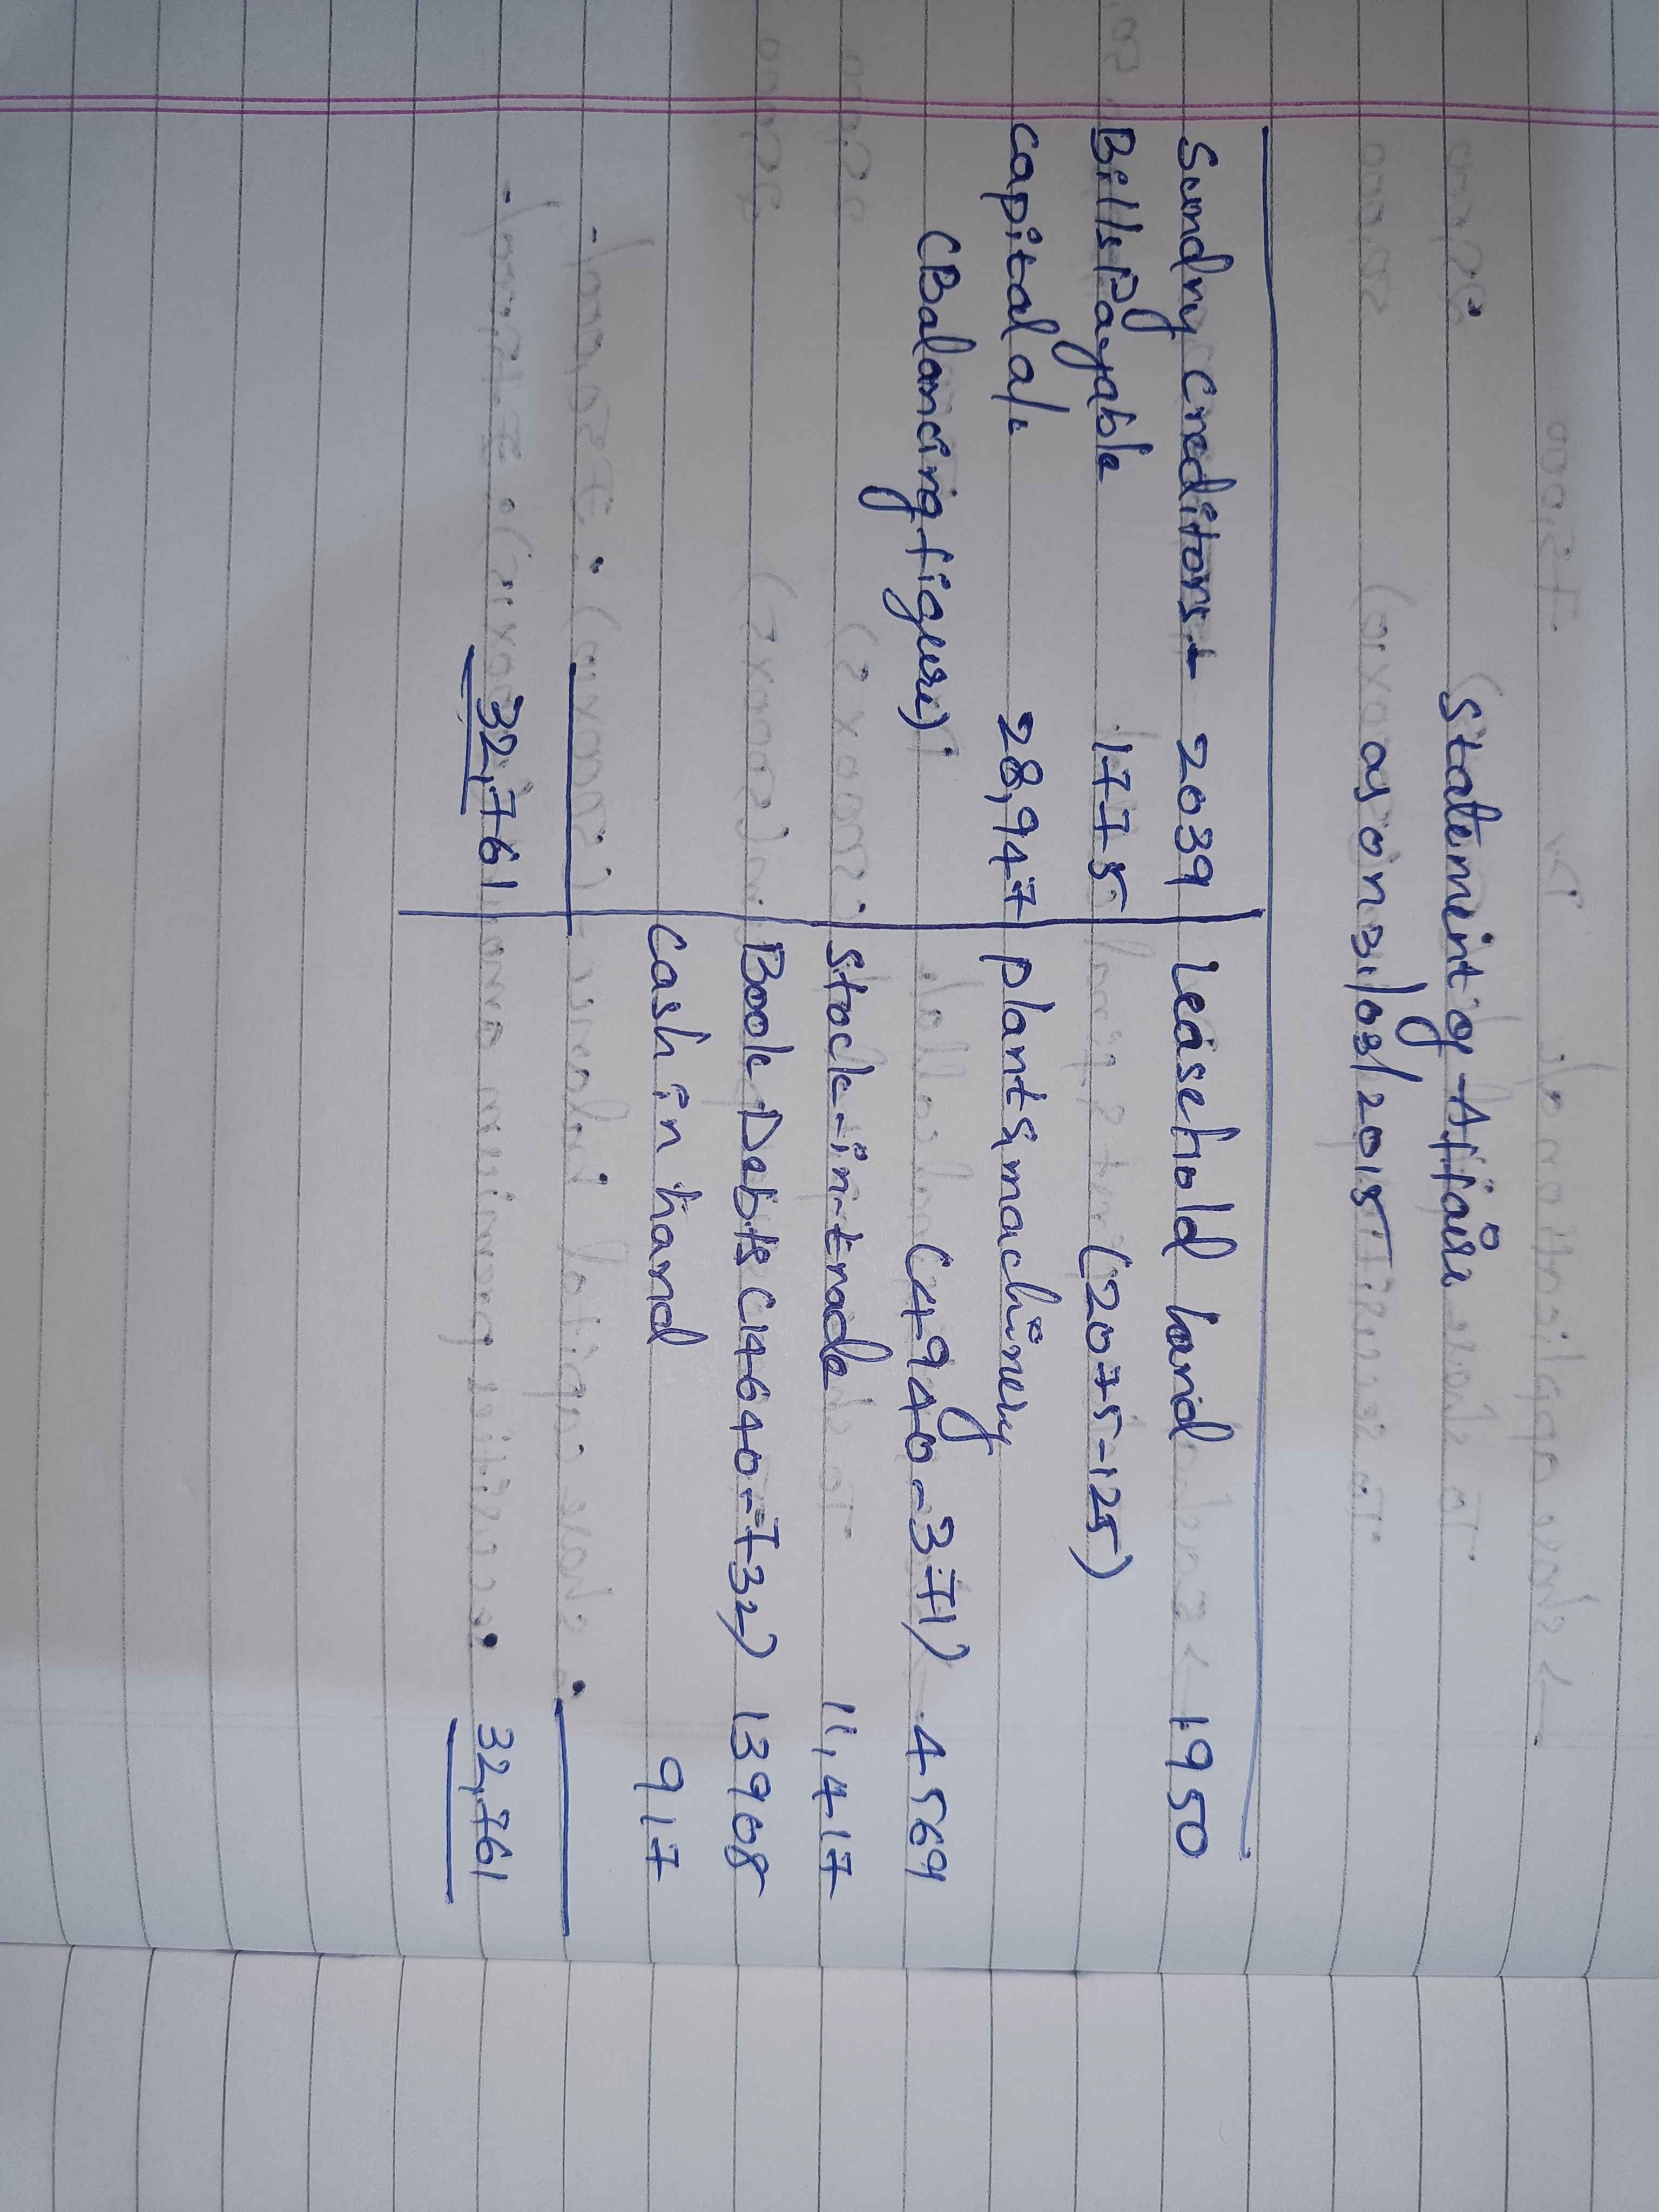 Statement of Affairs
as on 31/03/2015
Sundry Creditors - 2039 Leasehold land 1950
Bills Payable 1775 (2075-125)
Capital a/c 28,947 plant & machinery
(Balancing figure) (4940-371) 4569
Stock-in-trade 11,417
Book Debts (14640-732) 13908
Cash in hand 917
32,761 32,761